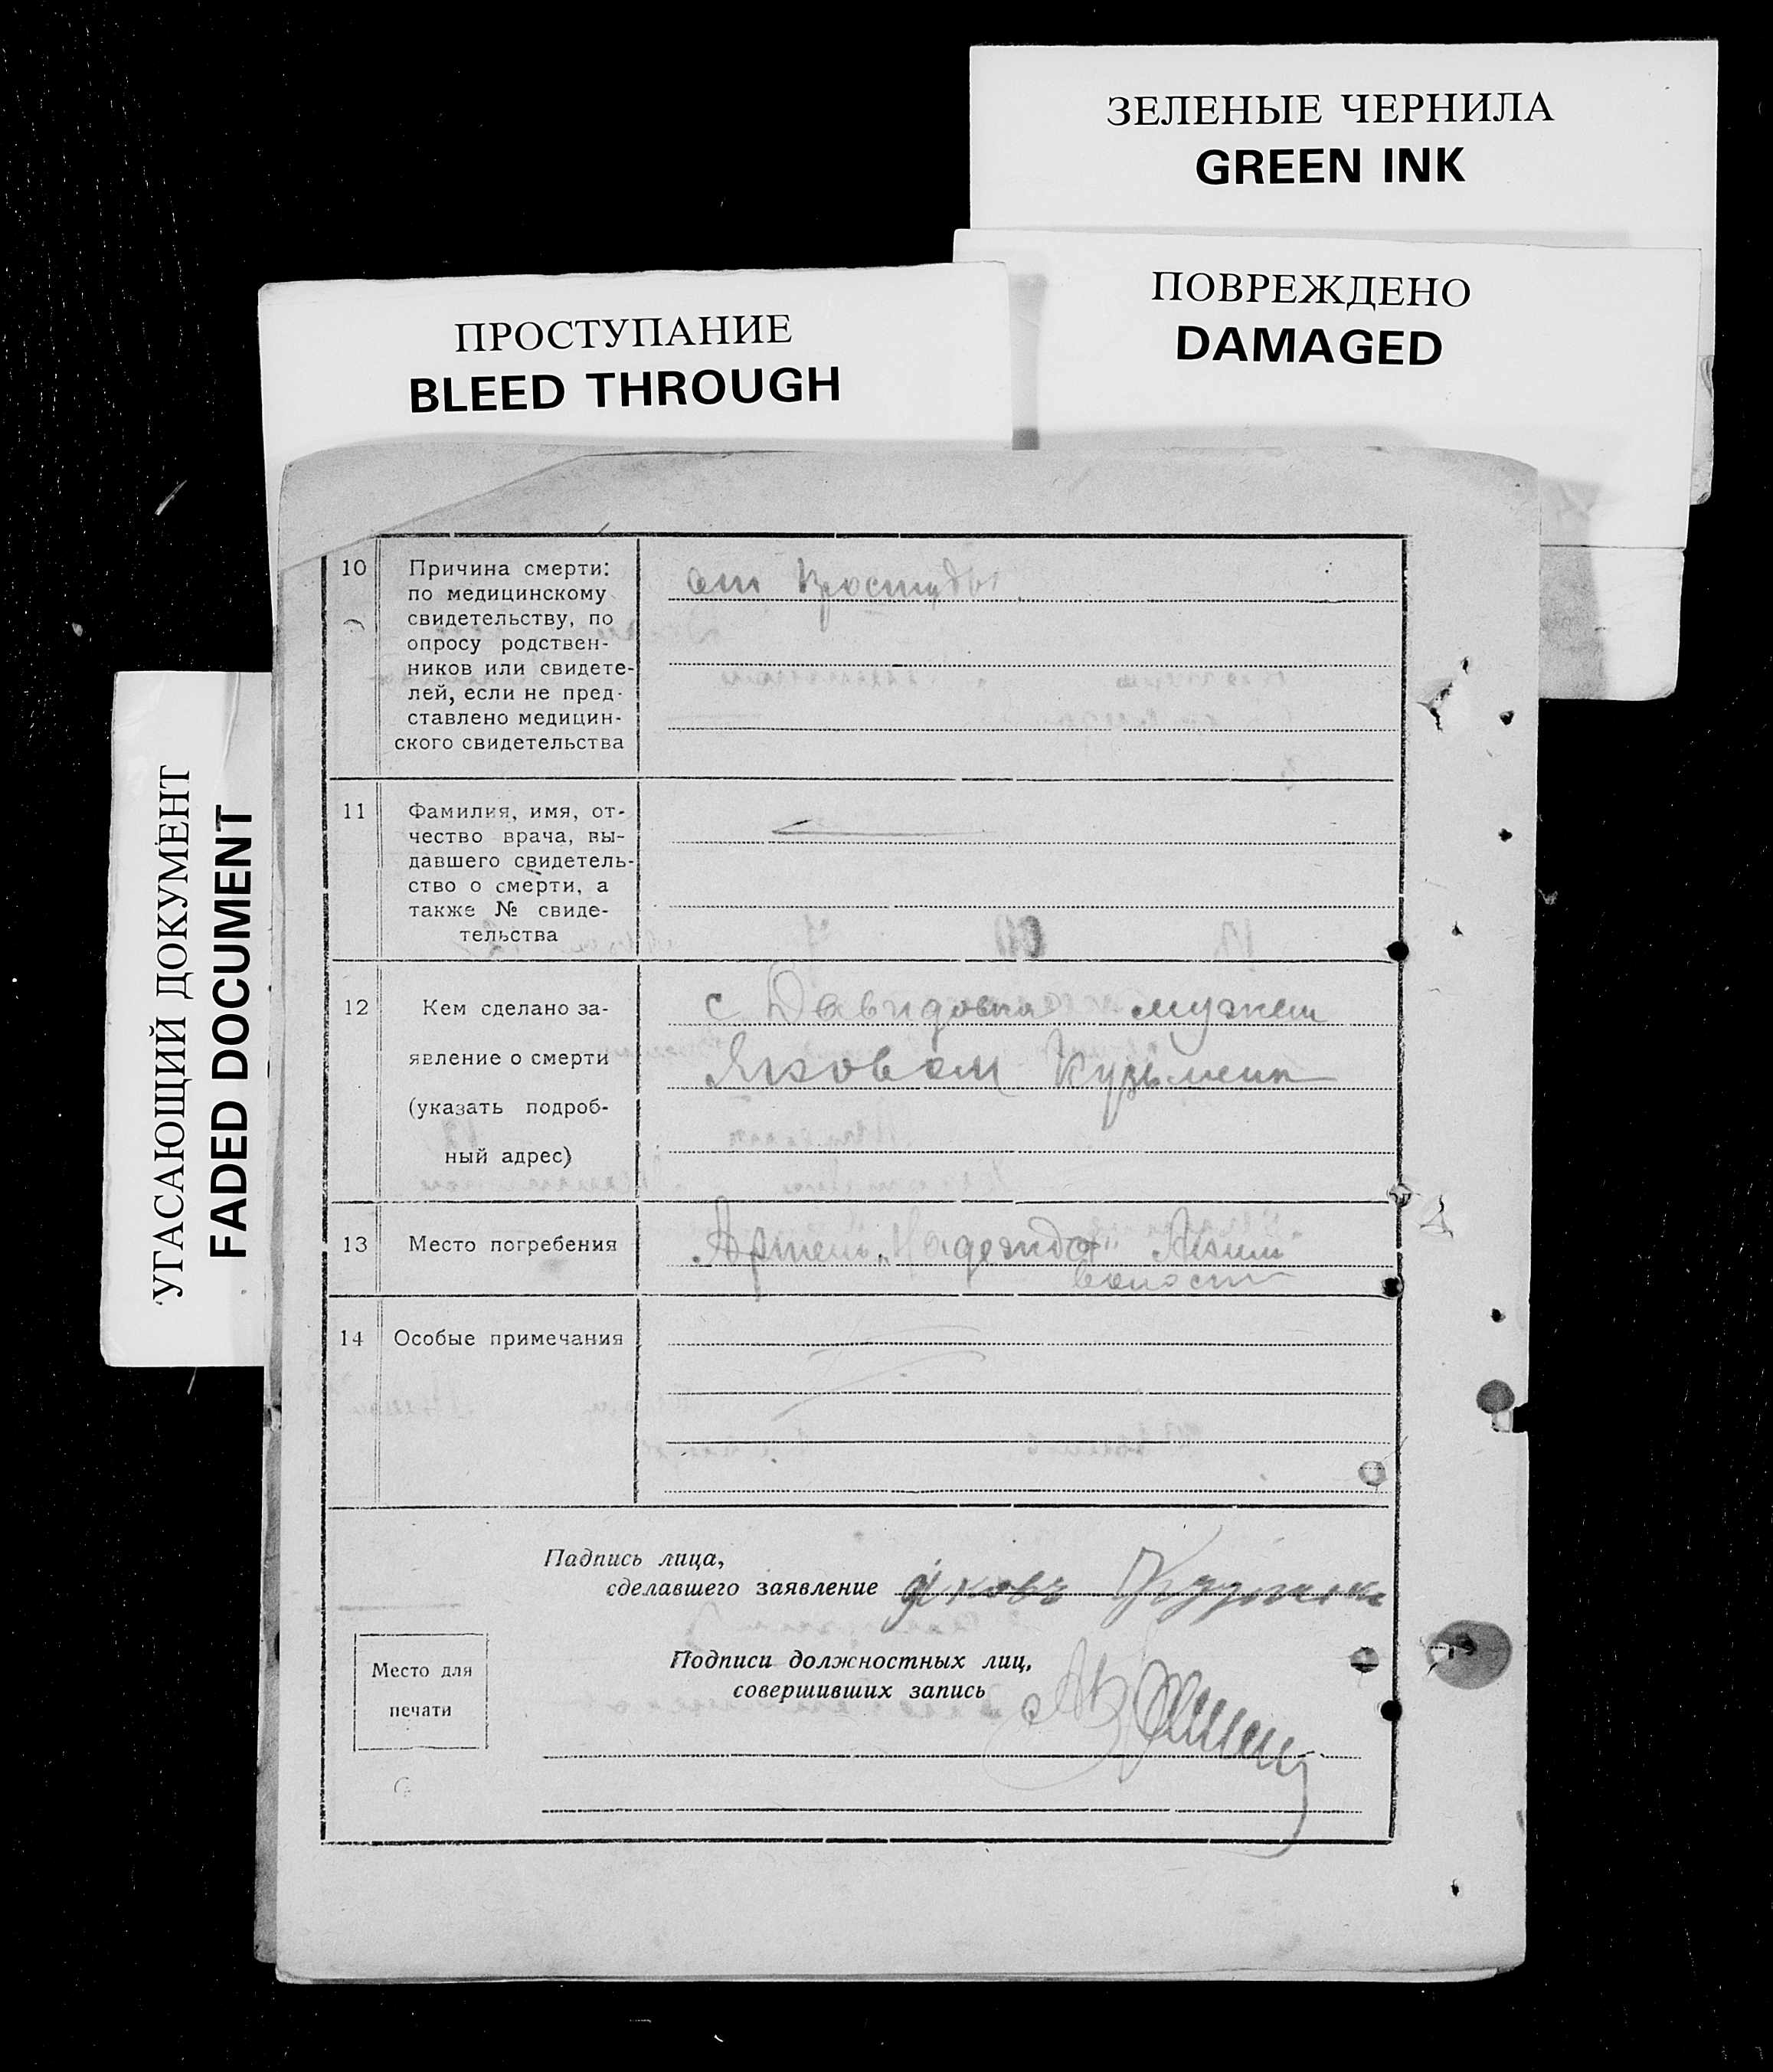 ЗЕЛЕНЫЕ ЧЕРНИЛА
GREEN INK
ПОВРЕЖДЕНО
DAMAGED
ПРОСТУПАНИЕ
BLEED THROUGH
УГАСАЮЩИЙ ДОКУМЕНТ
FADED DOCUMENT
10 Причина смерти:
по медицинскому
свидетельству, по
опросу родствен-
ников или свидете-
лей, если не пред-
ставлено медицин-
ского свидетельства
от простуды
11 Фамилия, имя, от-
чество врача, вы-
давшего свидетель-
ство о смерти, а
также № свиде-
тельства
12 Кем сделано за-
явление о смерти
(указать подроб-
ный адрес)
с. Давидовка мужем
Яковом Кузьменк
13 Место погребения
Артель „Надежда"
волости
14 Особые примечания
Падпись лица,
сделавшего заявление Яковъ
Подписи должностных лиц,
совершивших запись
Место для
печати